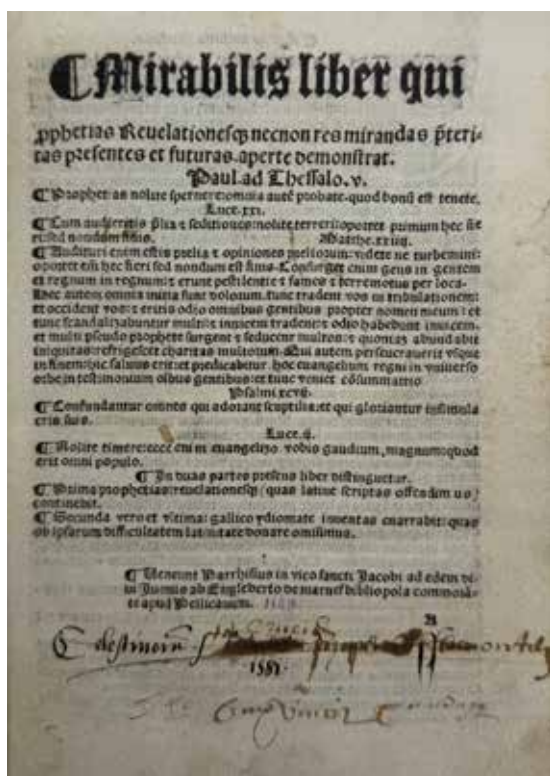 ¶ Mirabilis liber qui
prophetias Reuelationesq; necnon res mirandas p̄teri-
tas presentes et futuras. aperte demonstrat.
Paul. ad Thessalo. v.
¶ Prophetias nolite spernere: omnia autē probate. quod bonū est tenete.
Luce. xxi.
¶ Cum audieritis p̄lia ⁊ seditiones: nolite terreri: oportet primum hec
sed nondum finis. Matthe. xxiiij.
¶ Audituri enim estis prelia ⁊ opiniones preliorum: videte ne turbemini:
oportet em̄ hec fieri sed nondum est finis. Consurget enim gens in gentem
et regnum in regnum: ⁊ erunt pestilentie ⁊ fames ⁊ terremotus per loca.
Hec autem omnia initia sunt dolorum. tunc tradent vos in tribulationem:
et occident vos: ⁊ eritis odio omnibus gentibus propter nomen meum: et
tunc scandalizabuntur multi: ⁊ inuicem tradent: ⁊ odio habebunt inuicem.
et multi pseudo prophete surgent ⁊ seducent multos: ⁊ quoniaz abundabit
iniquitas: refrigescet charitas multorum. Qui autem perseuerauerit vsque
in finem: hic saluus erit: et predicabitur. hoc euangelium regni in vniuerso
orbe in testimonium oībus gentibus: et tunc veniet cōsummatio
Psalmi.
¶ Confundantur omnes qui adorant sculptilia: et qui gloriantur in simula
cris suis.
Luce. ij.
¶ Nolite timere: ecce enim euangelizo vobis gaudium, magnum: quod
erit omni populo.
¶ In duas partes presens liber distinguetur.
¶ Prima prophetias: reuelationesq; quas latine scriptas offendimus/
continebit.
¶ Secunda vero et vltima: gallico ydiomate inuentas enarrabit: quas
ob ipsarum difficultatem latinitate donare omisimus.
¶ Veneunt Parrhisius in vico sancti Jacobi ad edem di-
ui Juonis ab Engleberto de marnef bibliopola commora-
te apud Pellicanum.
A